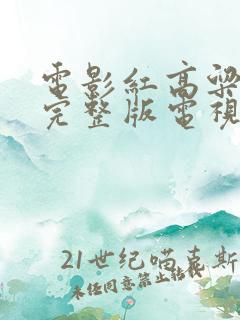 電影紅高粱
完整版電視
21世纪喵喜斯
未经同意禁止转载